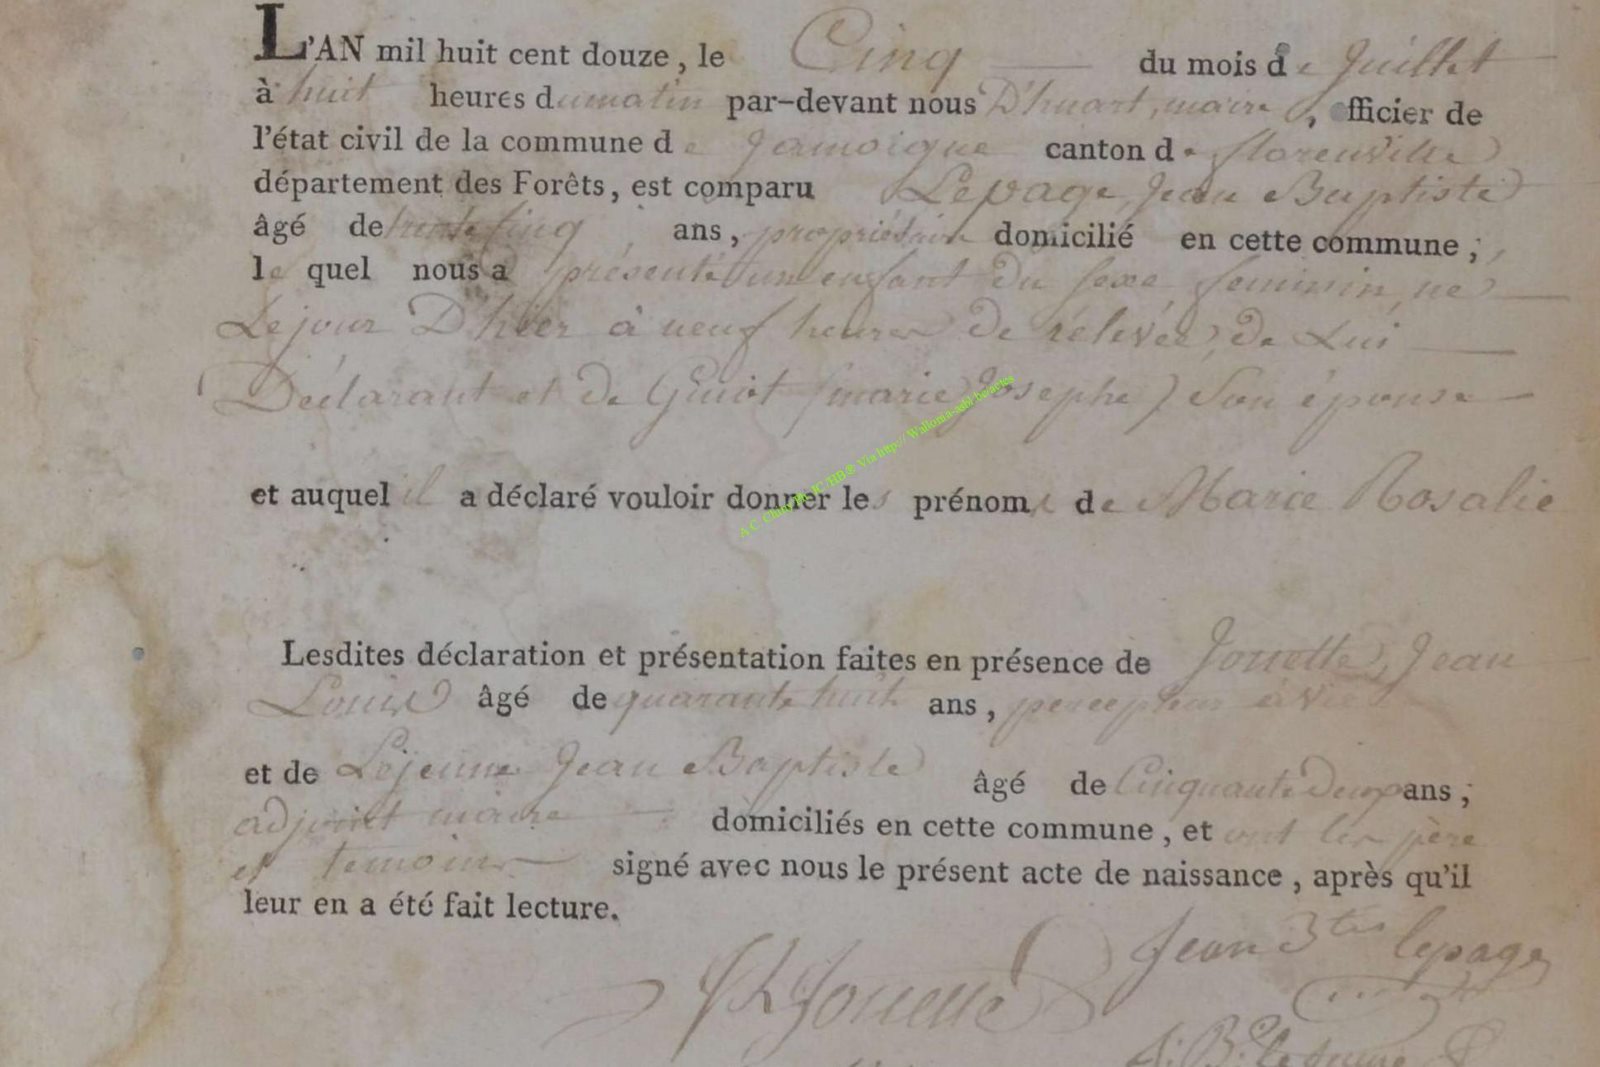 L'AN mil huit cent douze, le Cinq du mois de Juillet
à huit heures du matin par-devant nous D'huart, maire, officier de
l'état civil de la commune de Jamoigne canton de florenville
département des Forêts, est comparu Lepage, Jean Baptiste
âgé de trente cinq ans, propriétaire domicilié en cette commune;
le quel nous a présenté un enfant du sexe feminin, né
Le jour D'hier à neuf heures de rélévée, de Lui
Déclarant et de Guiot (marie Josephe) Son épouse
et auquel il a déclaré vouloir donner les prénoms de Marie Rosalie
A C Chiny IC HB® Via http:// Wallonia-asbl.be/actes
Lesdites déclaration et présentation faites en présence de Jouette, Jean
Louis âgé de quarante huit ans, percepteur à vie
et de Lejeune Jean Baptiste âgé de Cinquante Deux ans;
adjoint maire domiciliés en cette commune, et ont les père
et temoins signé avec nous le présent acte de naissance, après qu'il
leur en a été fait lecture.
Jean Btis lepage
Jouette
J: B: Lejeune